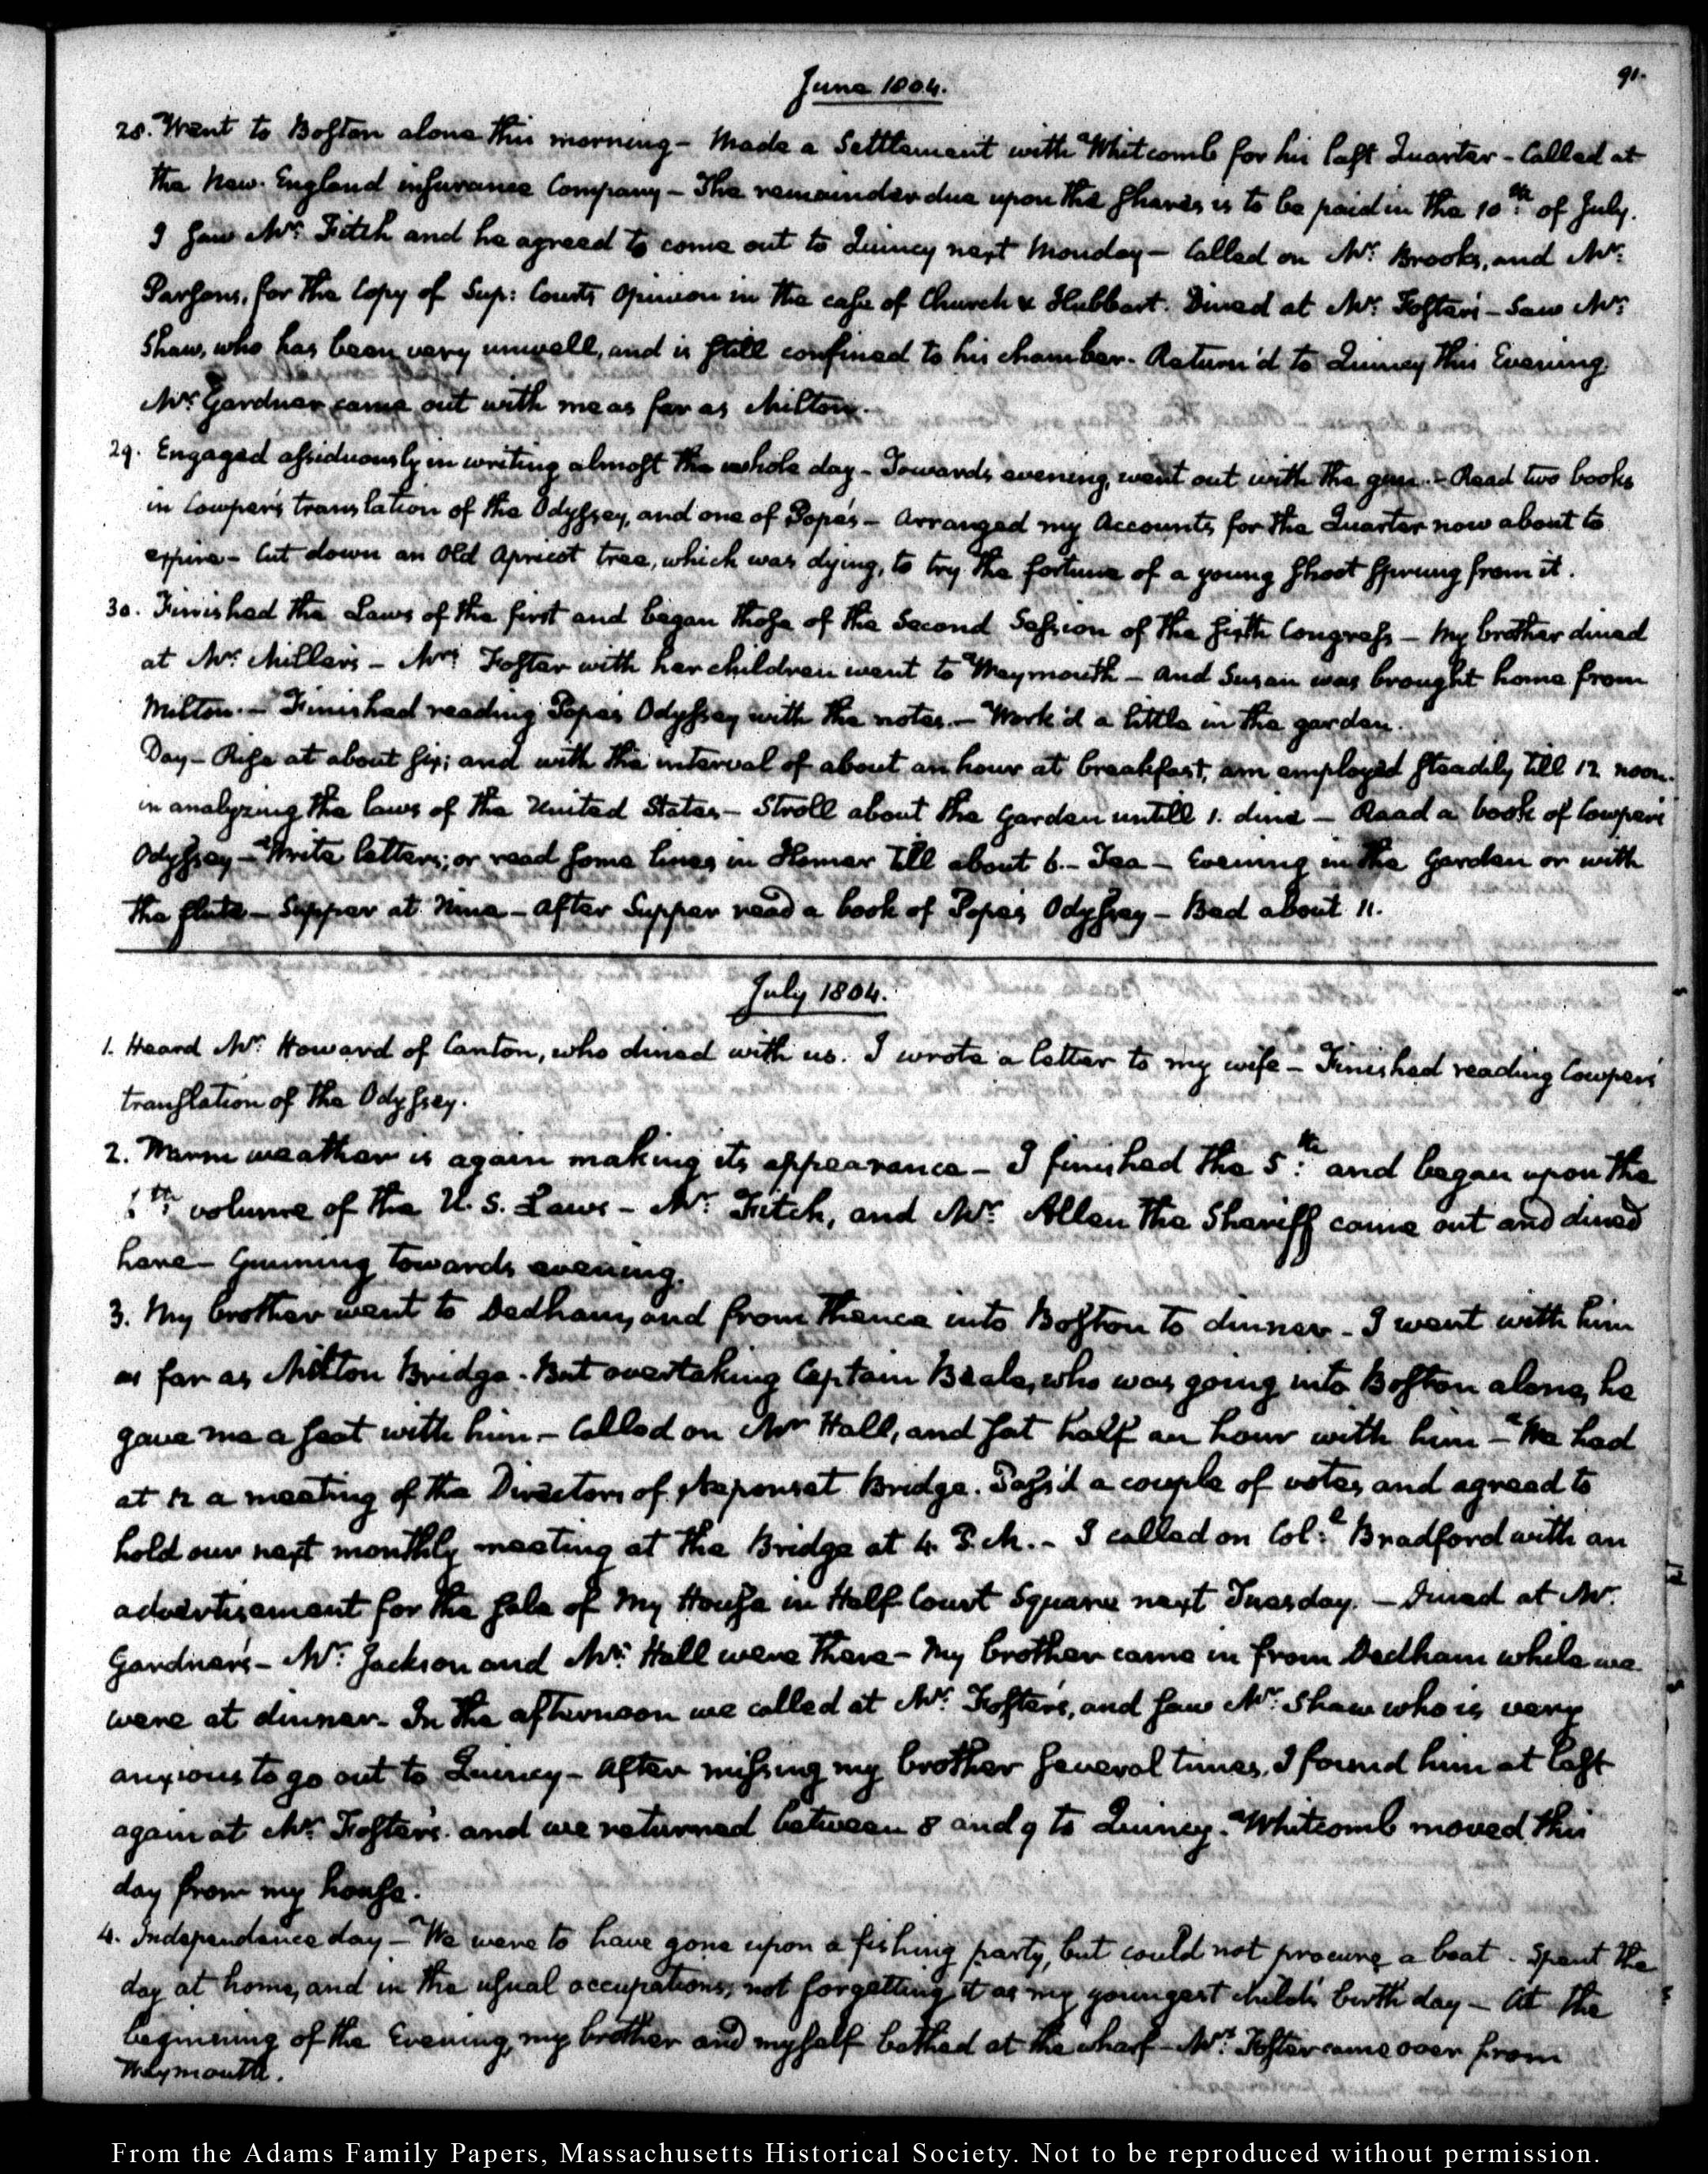 June 1804.
91.
28. Went to Boston alone this morning - Made a Settlement with Whitcomb for his last Quarter - Called at
the New-England insurance Company - The remainder due upon the shares is to be paid in the 10th: of July.
I saw Mr: Fitch and he agreed to come out to Quincy next Monday - Called on Mr: Brooks, and Mr:
Parsons, for the Copy of Sup: Courts Opinion in the case of Church & Hubbart. Dined at Mr: Foster's - Saw Mr:
Shaw, who has been very unwell, and is still confined to his chamber. Return'd to Quincy this Evening.
Mr: Gardner came out with me as far as Milton.
29. Engaged assiduously in writing almost the whole day - Towards evening, went out with the gun. - Read two books
in Cowper's translation of the Odyssey, and one of Pope's - Arranged my Accounts for the Quarter now about to
expire - Cut down an old Apricot tree, which was dying, to try the fortune of a young shoot sprung from it.
30. Finished the Laws of the first and began those of the Second Session of the sixth Congress - My brother dined
at Mr: Miller's - Mrs: Foster with her children went to Weymouth - and Susan was brought home from
Milton. - Finished reading Pope's Odyssey with the notes. - Work'd a little in the garden.
Day - Rise at about six; and with the interval of about an hour at breakfast, am employed steadily till 12 noon.
in analyzing the laws of the United States - Stroll about the Garden untill 1. dine - Read a book of Cowper's
Odyssey - Write letters; or read some lines in Homer till about 6. - Tea - Evening in the Garden or with
the flute - Supper at Nine - After Supper read a book of Pope's Odyssey - Bed about 11.
July 1804.
1. Heard Mr: Howard of Canton, who dined with us. I wrote a letter to my wife - Finished reading Cowper's
translation of the Odyssey.
2. Warm weather is again making its appearance - I finished the 5:th and began upon the
6:th volume of the U. S. Laws - Mr: Fitch, and Mr: Allen the Sheriff came out and dined
here - Gunning towards evening.
3. My brother went to Dedham, and from thence into Boston to dinner - I went with him
as far as Milton Bridge. But overtaking Captain Beale, who was going into Boston alone, he
gave me a seat with him - Called on Mr Hall, and sat half an hour with him - We had
at 12 a meeting of the Directors of Neponset Bridge. Pass'd a couple of votes, and agreed to
hold our next monthly meeting at the Bridge at 4. P.M. - I called on Col:l Bradford with an
advertisement for the sale of my House in Half Court Square next Tuesday. - Dined at Mr.
Gardner's - Mr: Jackson and Mr: Hall were there - My brother came in from Dedham while we
were at dinner. In the afternoon we called at Mr: Foster's, and saw Mr: Shaw who is very
anxious to go out to Quincy - After missing my brother several times, I found him at last
again at Mr: Foster's. and we returned between 8 and 9 to Quincy. Whitcomb moved this
day from my house.
4. Independence day - We were to have gone upon a fishing party, but could not procure a boat. Spent the
day at home, and in the usual occupations, not forgetting it as my youngest child's birth day - At the
beginning of the Evening, my brother and myself bathed at the wharf - Mrs: Foster came over from
Weymouth.
From the Adams Family Papers, Massachusetts Historical Society. Not to be reproduced without permission.